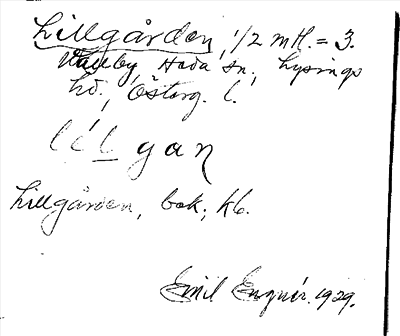 Lillgården, 1/2 mtl. = 3.
Väseby, Heda sn., Lysings
hd., Österg. l.
lílgan
Lillgården, bok; kb.
Emil Engnér. 1929.